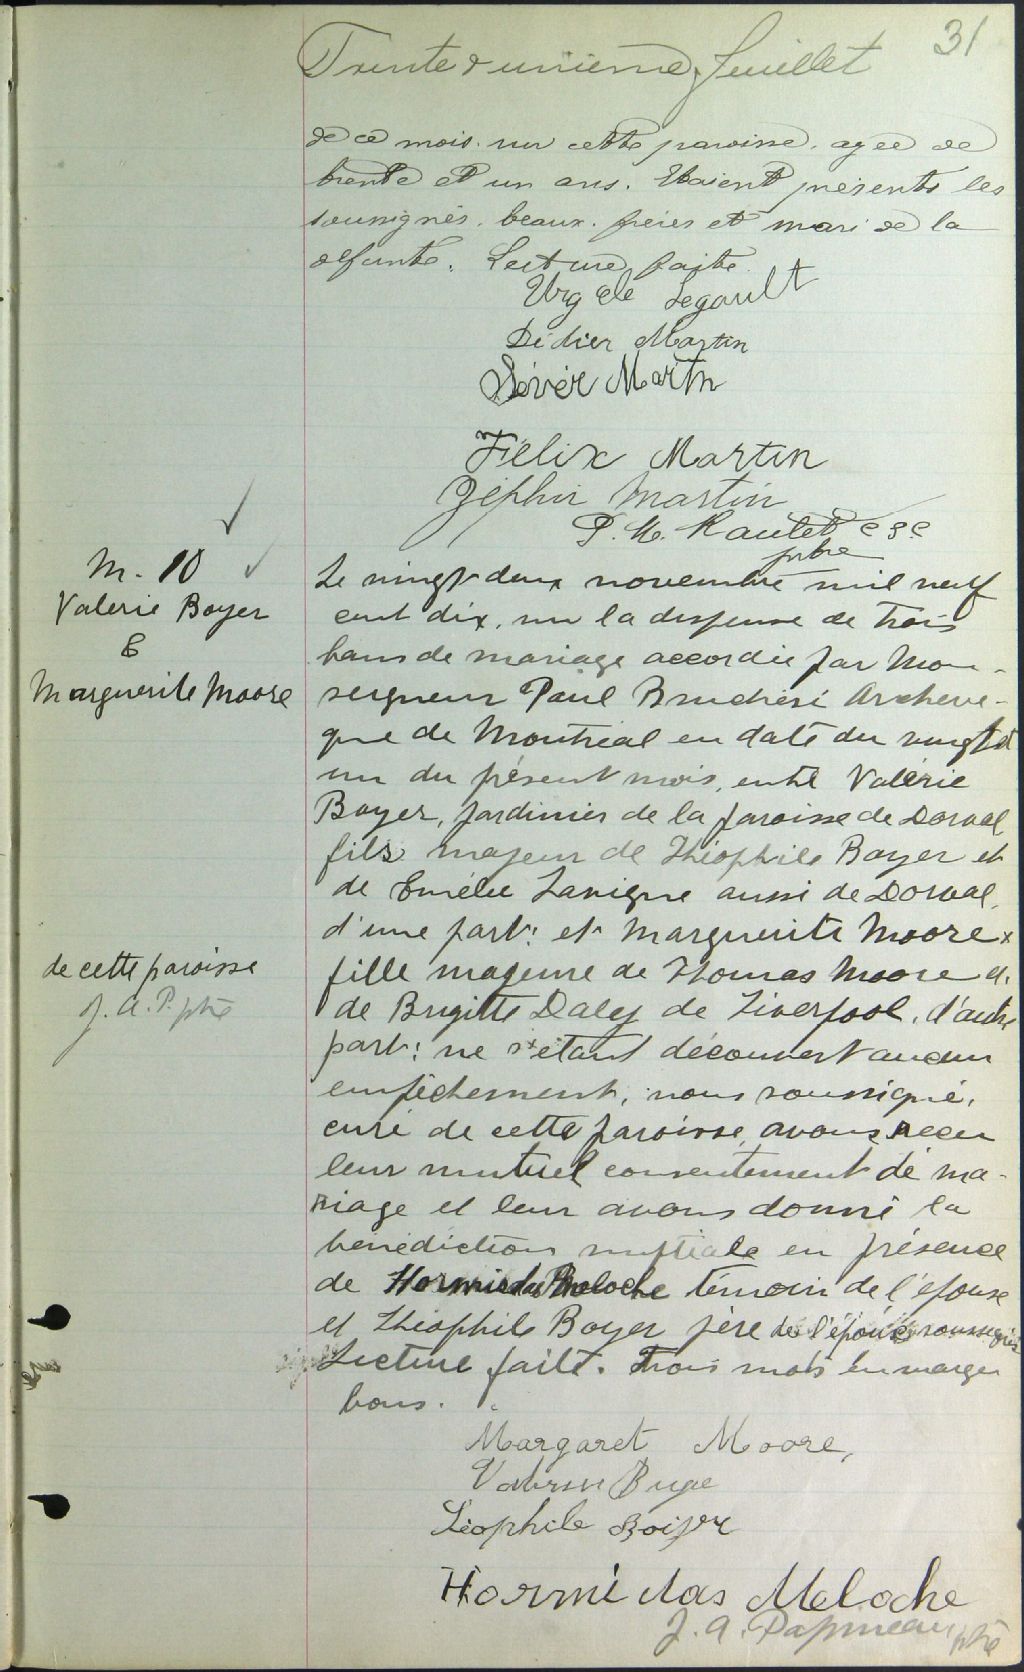 31
Trente & unième feuillet
de ce mois. sur cette paroisse. agée de
trente et un ans. Etaient présents les
soussignés. beaux. frères et mari de la
défunte. Lecture faite.
Urgele Legault
Didier Martin
Sévèr Martin
Félix Martin
Zéphir Martin
P. M. csc
ptre
M. 10
Valerie Boyer
&
Marguerite Moore
Le vingt deux novembre mil neuf
cent dix, vu la dispense de trois
bans de mariage accordée par Mon-
seigneur Paul Bruchési Archevê-
que de Montréal en date du vingt et
un du présent mois, entre Valérie
Boyer, jardinier de la paroisse de Dorval,
fils majeur de Théophile Boyer et
de Emélie Lavigne aussi de Dorval,
d'une part: et Marguerite Moore x
fille majeure de Thomas Moore et
de Brigitte Daley de Liverpool, d'autre
part: ne s'étant découvert aucun
empêchement, nous soussigné,
curé de cette paroisse, avons reçu
leur mutuel consentement de ma-
riage et leur avons donné la
bénédiction nuptiale en présence
de Hormisdas Meloche témoin de l'épouse
et Théophile Boyer père de l'époux soussignés
Lecture faite. Trois mots en marge
bons.
de cette paroisse
J. A. P. ptre
Margaret Moore,
Valerie
Téophile Boiyer
Hormidas Meloche
J. A. Papineau ptre